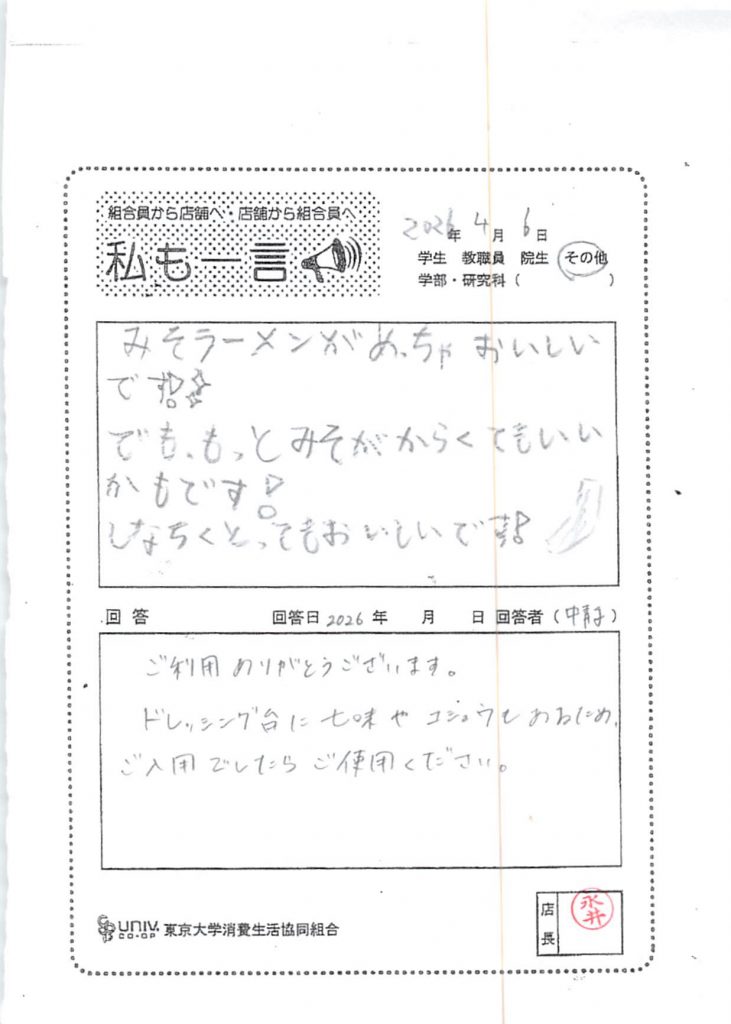 組合員から店舗へ・店舗から組合員へ
私も一言
2026年 4月 6日
学生 教職員 院生 その他
学部・研究科( )
みそラーメンがめっちゃおいしい
です!!
でも、もっとみそがからくてもいい
かもです!
しなちくとってもおいしいです!!
回答 回答日2026年 月 日 回答者( )
ご利用ありがとうございます。
ドレッシング台に七味やコショウもあるため、
ご入用でしたらご使用ください。
UNIV. CO-OP 東京大学消費生活協同組合
店長
永井